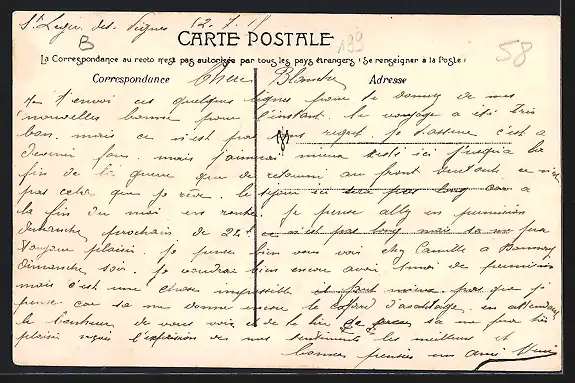 St Leger des Vignes 12.7.18
B
199
58
CARTE POSTALE
La Correspondance au recto n'est pas autorisée par tous les pays étrangers (Se renseigner à la Poste)
Correspondance
Adresse
Chère Blanche
t'envoi ces quelques lignes pour te donner de mes
nouvelles bonne pour l'instant. Le voyage a été très
bon. mais ce n'est pas sans regret. Je t'assure c'est a
devenir fou. mais j'aimerai mieux resté ici jusqu'a la
fin de la guerre que de retourné au front
pas cela que je rêve. le séjour ici sera pas long car a
la fin du mois en rentre. Je pense allé en permission
dimanche prochain de 24h ce n'est pas long mais sa me fera
toujour plaisir. Je pense bien vous voir chez Camille a
dimanche soir. Je voudrai bien encore avoir 1 mois de permission
mais c'est une chose impossible il faut mieux pas que j'y
pense car sa me donne encore le cafard d'avantage. en attendant
le bonheur de vous voir et de te lire sa me fera très
plaisir reçois l'expression de mes sentiments les meilleurs et
bonnes pensées en ami